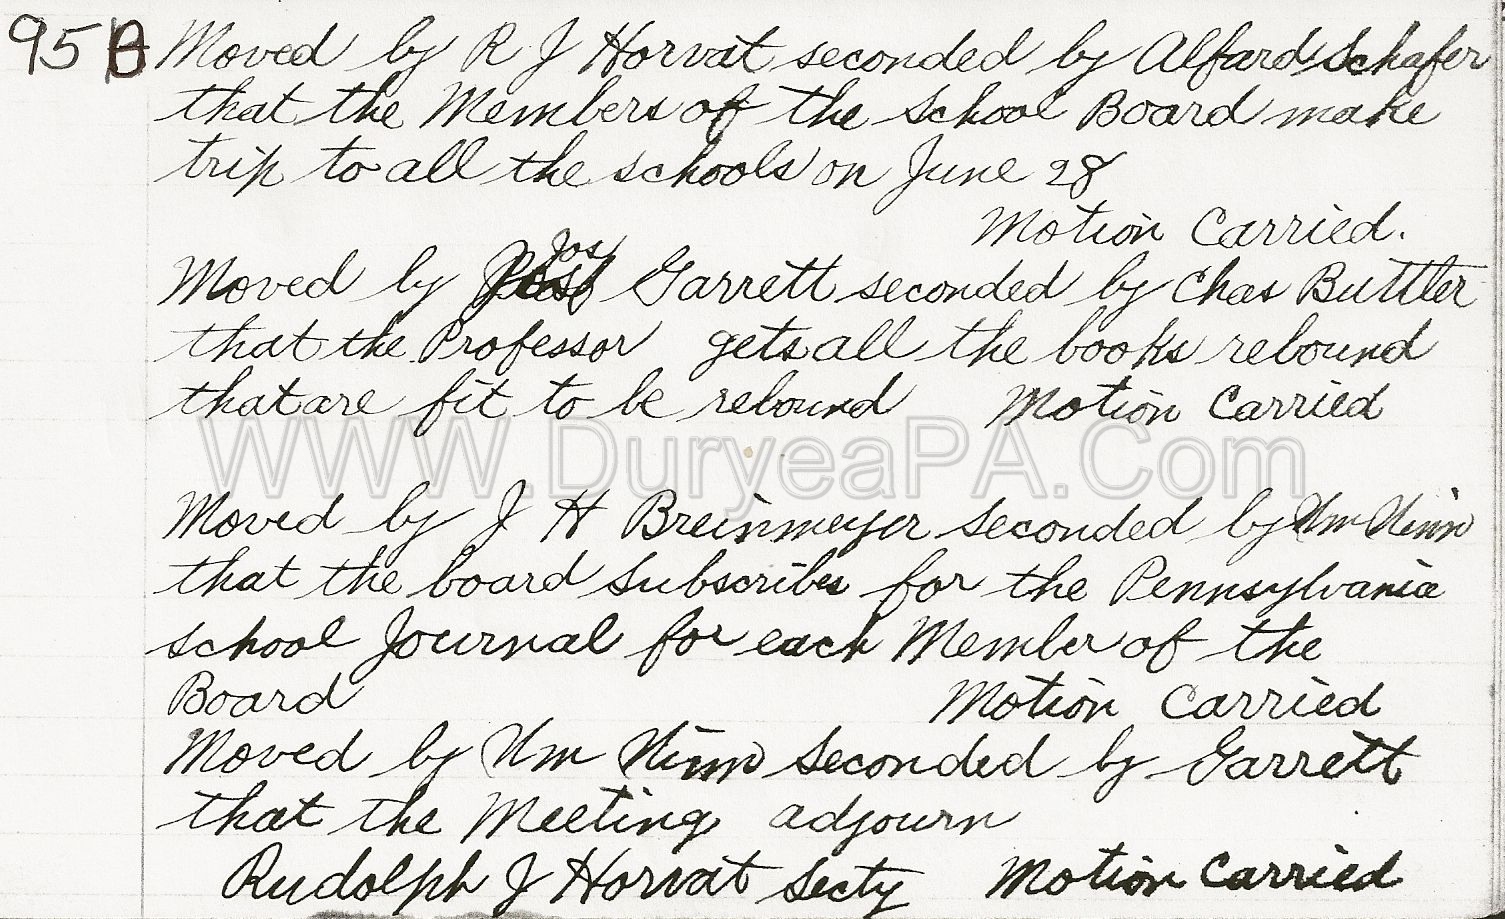 95B Moved by R J Horvat seconded by Alfard Schafer
that the Members of the School Board make
trip to all the schools on June 28
Motion Carried.
Jos
Moved by Garrett seconded by Chas Buttler
that the Professor gets all the books rebound
that are fit to be rebound Motion Carried
WWW.DuryeaPA.Com
Moved by J H Breinmeyer seconded by Wm
that the board subscribes for the Pennsylvania
school Journal for each Member of the
Board Motion Carried
Moved by Wm seconded by Garrett
that the Meeting adjourn
Rudolph J Horvat Secty Motion Carried